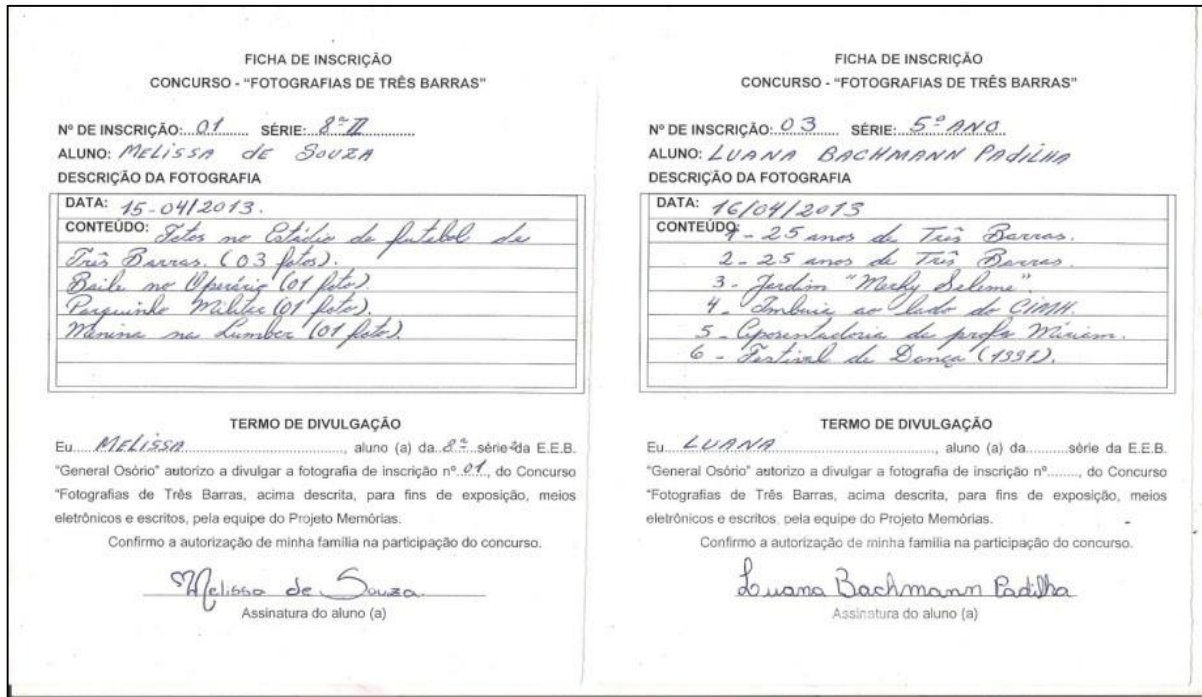 FICHA DE INSCRIÇÃO
CONCURSO - "FOTOGRAFIAS DE TRÊS BARRAS"
Nº DE INSCRIÇÃO:...01........ SÉRIE:...8ª II.............
ALUNO: MELISSA DE SOUZA
DESCRIÇÃO DA FOTOGRAFIA
DATA: 15-04/2013.
CONTEÚDO: Fotos no Estádio de futebol de
Três Barras. (03 fotos).
Baile no Operário (01 foto).
Parquinho Militar (01 foto).
Menina na Lumber (01 foto).
TERMO DE DIVULGAÇÃO
Eu.....MELISSA..................................., aluno (a) da 8ª série da E.E.B.
"General Osório" autorizo a divulgar a fotografia de inscrição nº.01., do Concurso
"Fotografias de Três Barras, acima descrita, para fins de exposição, meios
eletrônicos e escritos, pela equipe do Projeto Memórias.
Confirmo a autorização de minha família na participação do concurso.
Melissa de Souza
Assinatura do aluno (a)
FICHA DE INSCRIÇÃO
CONCURSO - "FOTOGRAFIAS DE TRÊS BARRAS"
Nº DE INSCRIÇÃO: 03..... SÉRIE: 5º ANO
ALUNO: LUANA BACHMANN PADILHA
DESCRIÇÃO DA FOTOGRAFIA
DATA: 16/04/2013
CONTEÚDO: 1 - 25 anos de Três Barras.
2 - 25 anos de Três Barras.
3 - Jardim "Mechy Seleme".
4 - Imbuia ao lado do CIMH.
5 - Aposentadoria da profa Míriam.
6 - Festival de Dança (1991).
TERMO DE DIVULGAÇÃO
Eu.....LUANA..................................., aluno (a) da..........série da E.E.B.
"General Osório" autorizo a divulgar a fotografia de inscrição nº........, do Concurso
"Fotografias de Três Barras, acima descrita, para fins de exposição, meios
eletrônicos e escritos, pela equipe do Projeto Memórias.
Confirmo a autorização de minha família na participação do concurso.
Luana Bachmann Padilha
Assinatura do aluno (a)